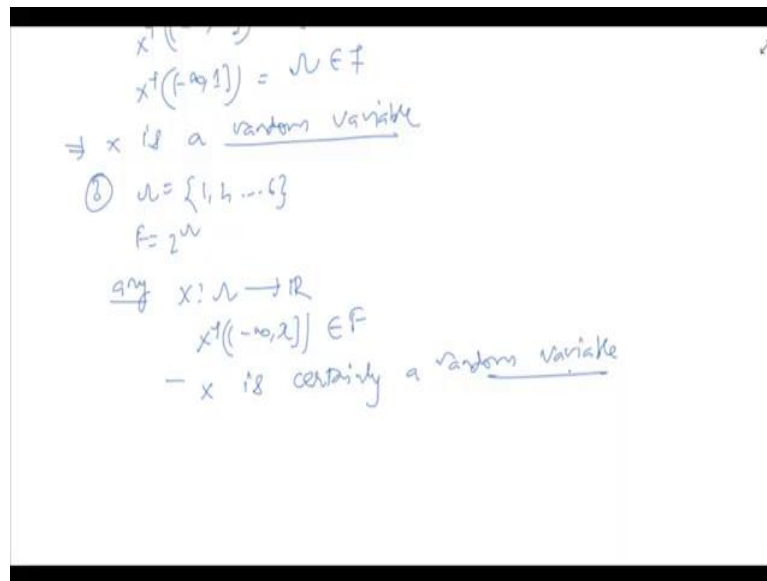 X⁻¹((-∞,1]) = Ω ∈ F
⇒ X is a random variable
③ Ω = {1, 2, ... 6}
F = 2^Ω
any X: Ω → ℝ
X⁻¹((-∞, x]) ∈ F
- X is certainly a random variable